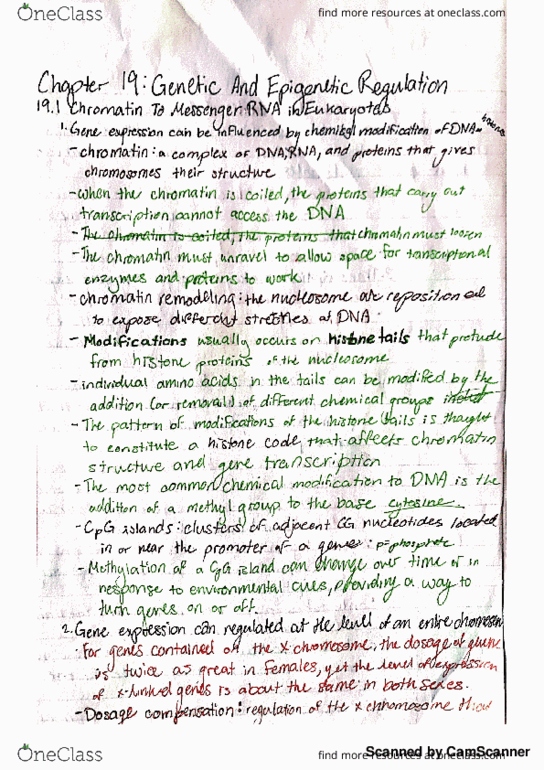 OneClass
find more resources at oneclass.com
Chapter 19: Genetic And Epigenetic Regulation
19.1 Chromatin To Messenger RNA in Eukaryotes
1. Gene expression can be influenced by chemical modification of DNA or histones
- chromatin: a complex of DNA, RNA, and proteins that gives
chromosomes their structure
- when the chromatin is coiled, the proteins that carry out
transcription cannot access the DNA
- The chromatin is coiled, the proteins that chromatin must loosen
- The chromatin must unravel to allow space for transcriptional
enzymes and proteins to work
- chromatin remodeling: the nucleosome are repositioned
to expose different stretches of DNA
- Modifications usually occurs on histone tails that protude
from histone proteins of the nucleosome
- individual amino acids in the tails can be modified by the
addition (or removal) of different chemical groups
- The pattern of modifications of the histone tails is thought
to constitute a histone code that affects chromatin
structure and gene transcription
- The most common chemical modification to DNA is the
addition of a methyl group to the base cytosine.
- CpG islands: clusters of adjacent CG nucleotides located
in or near the promoter of a genes: p=phosphate
- Methylation of a CpG island can change over time or in
response to environmental cues, providing a way to
turn genes on or off.
2. Gene expression can regulated at the level of an entire chromosom
For genes contained on the x chromosome, the dosage of
is twice as great in females, yet the level of expression
of x-linked genes is about the same in both sexes.
- Dosage compensation: regulation of the x chromosome
OneClass
find more resources at oneclass.com
Scanned by CamScanner